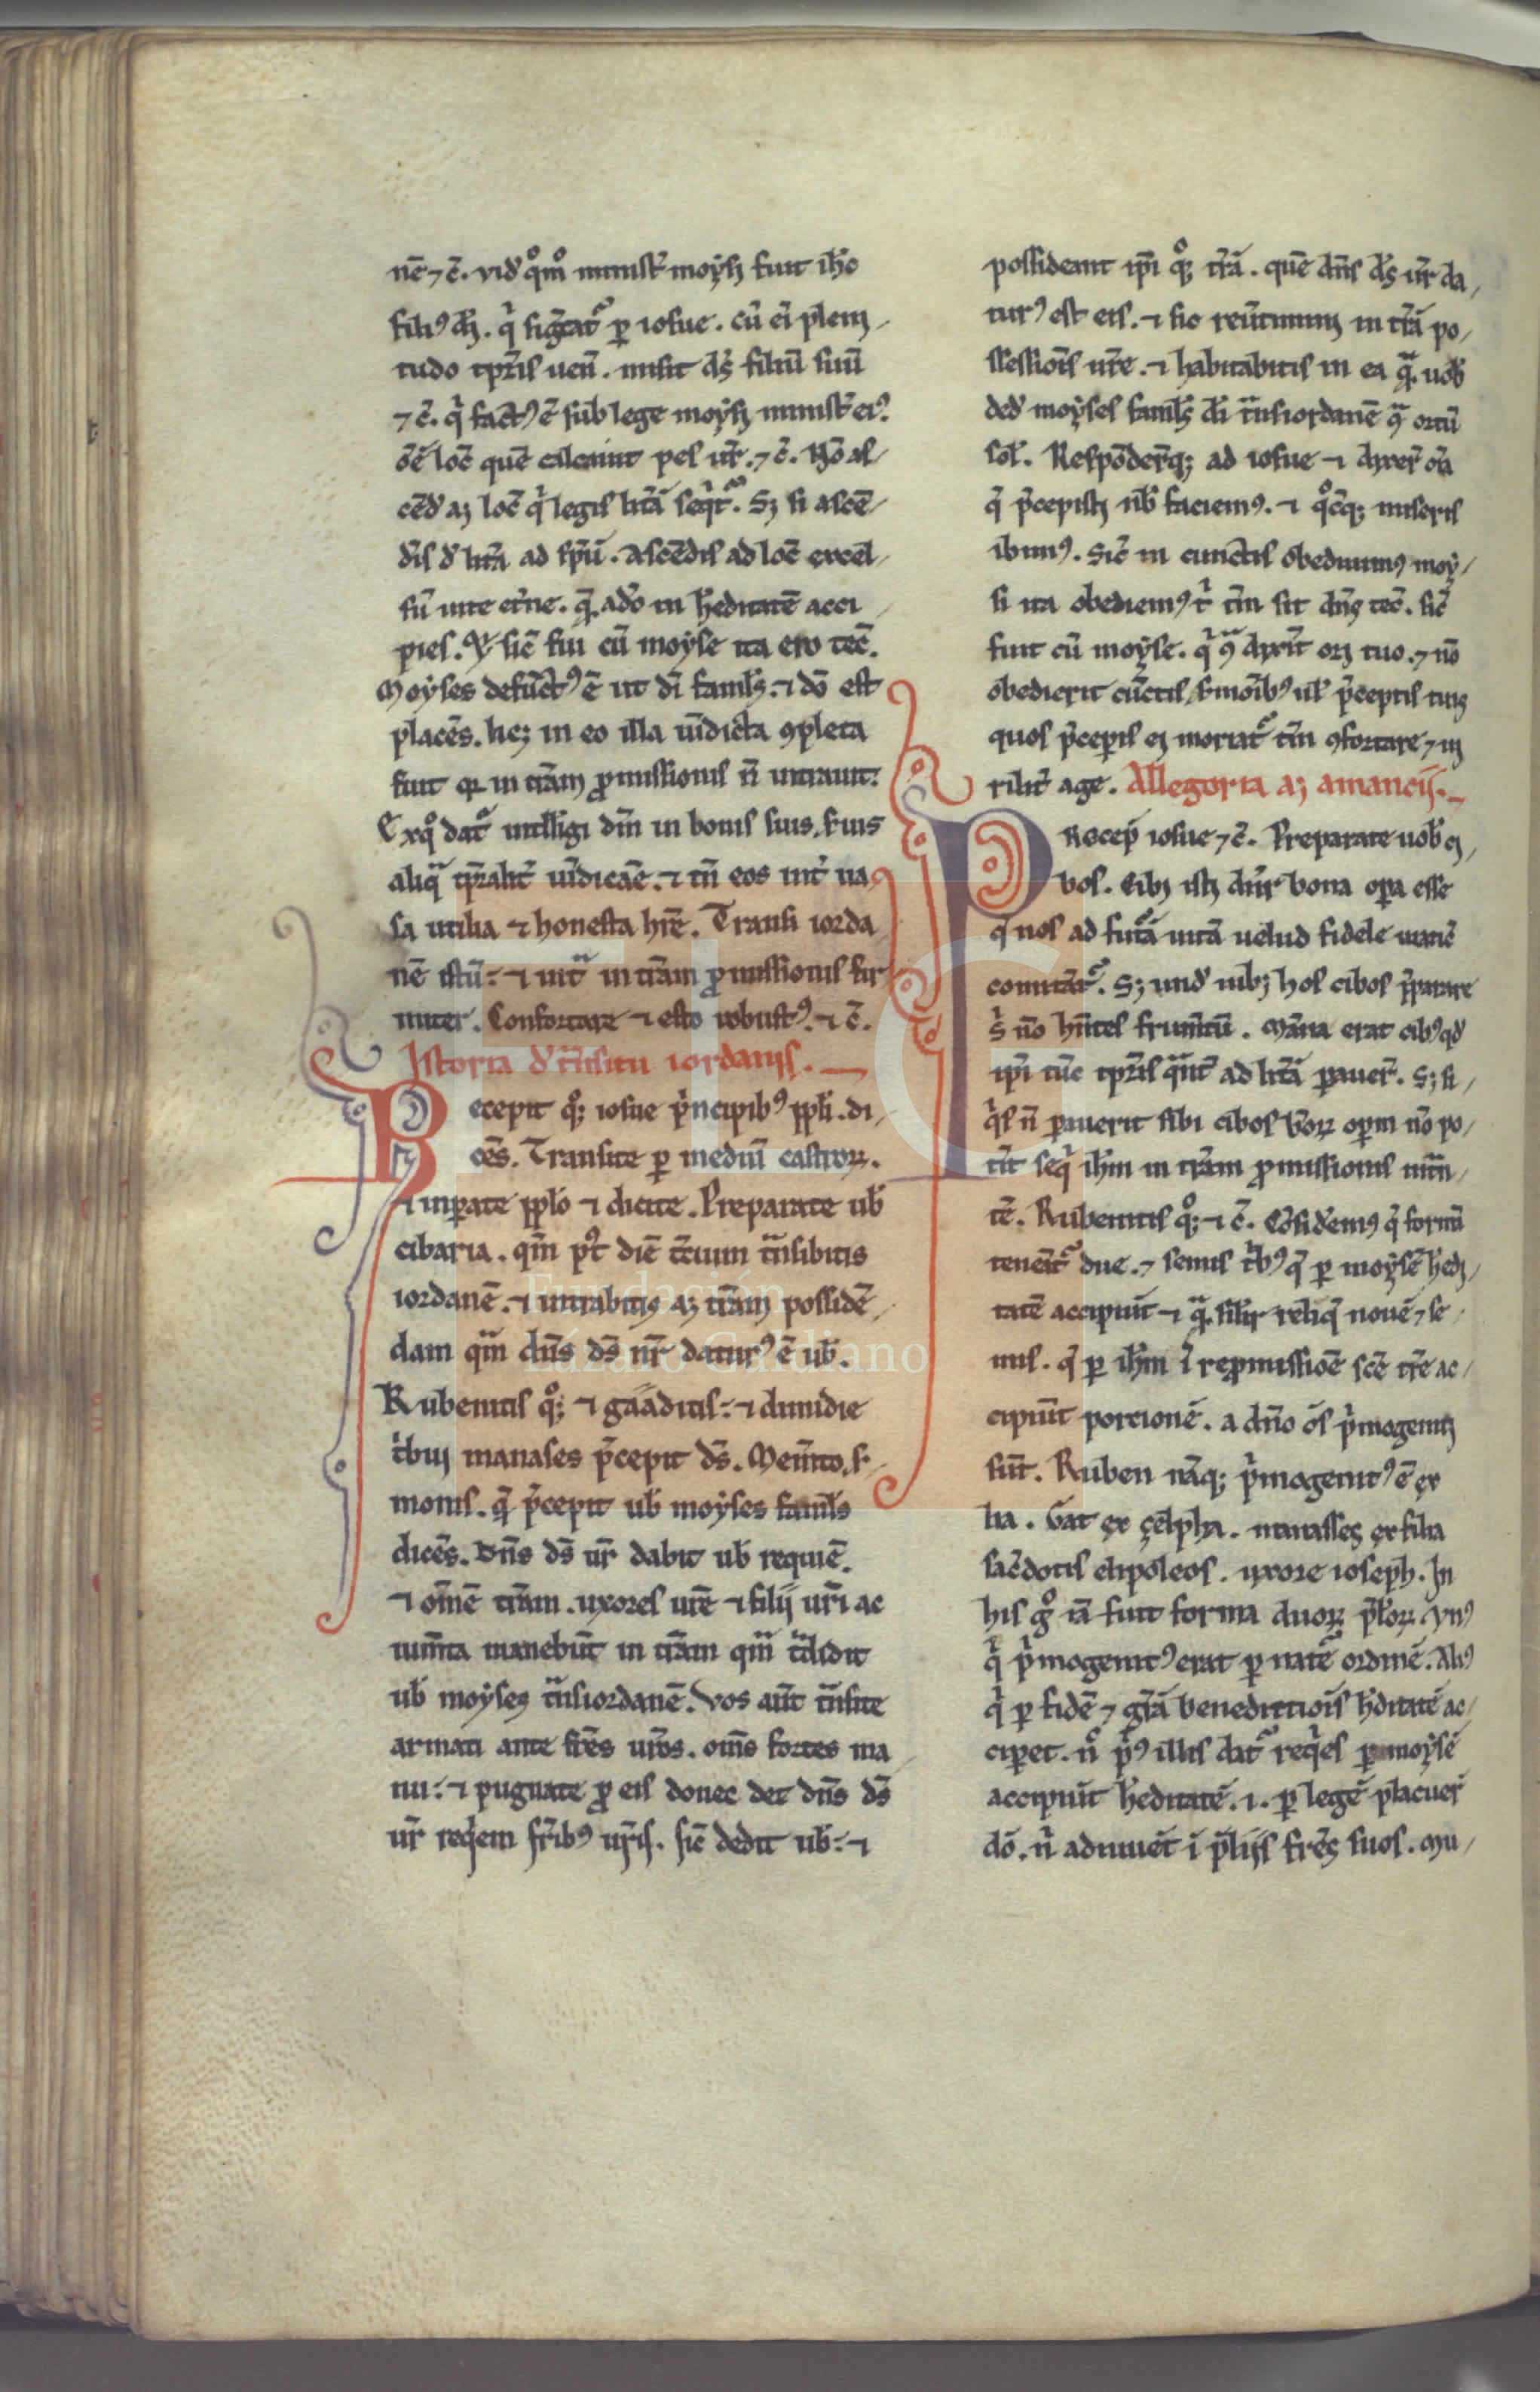 nē ⁊ c̄. vid̕ qͦmͦ minist̕ moẏsi fuit ih̄c
filiꝰ d̄i. q̇ sig̅cat᷑ ꝑ iosue. cū ei̅ plení
tudo tp̄ris ueń. misit d̄s filiū suū
⁊ c̄. q̇ fact̄ꝰ ē sub lege moẏsi minist̕ eiꝰ.
ōe̅ loc̄ que̅ calcauit pes ur̄. ⁊ c̄. Nō as
ce̅d̕ aꝫ loc̄ q̇ legis lr̄a̅ seq̇t᷑. Sꝫ si asce̅
dis d̕ lr̄a ad sp̄m. ascēdis ad loc̄ excel
su̅ uite et̕ne. q̄ ad̕o in h̕editatē acci
pies. Et sic̄ fui cū moẏse ita ero tec̄.
Moẏses defūct̄ꝰ ē ut dī famul̕s. ⁊ dō est
placēs. licꝫ in eo illa ui̅dicta ꝯpleta
fuit qr in tr̄am ꝓmissionis n̄ intrauit.
Exq̊ dat᷑ intelligi dm̄ in bonis suis suis
aliqͣ tp̄ralit̕ ui̅dicāe. ⁊ tn̄ eos int̕ ua
sa utilia ⁊ honesta hr̄e. Transi iorda
nē istū. ⁊ intͣ̕ in tr̄am ꝓmissionis fir
miter. Confortare ⁊ esto robustꝰ. ⁊ c̄.
Istoria d̕ tͣnsitu iordanis.
Recepit q̊ꝫ iosue p̕ncipibꝰ ppl̕i. di
cēs. Transite ꝑ mediū castroꝝ.
⁊ inꝑate ppl̕o ⁊ dicite. Preparate ub̕
cibaria. qm̄ pꝰt diē t̕cium tͣnsibitis
iordanē. ⁊ intrabitis aꝫ tr̄am possidē
dam qm̄ dn̄s ds̄ nr̄ daturꝰ ē ub̕.
Rubenitis q̊ꝫ ⁊ gaāditis. ⁊ dimidie
t̕bui manases p̄cepit ds̄. Mem̄to s̕
monis. q̄ p̄cepit ub̕ moẏses famul̕s
dicēs. Dn̄s ds̄ ur̄ dabit ub̕ requiē.
⁊ om̄ē tr̄am. uxores ur̄e ⁊ filij ur̄i ac
ium̄ta manebūt in tr̄am qm̄ tͣdidit
ub̕ moẏses tͣnsiordanē. Vos aūt tͣnsite
armati ante fr̄es ur̄os. om̄s fortes ma
nu. ⁊ pugnate ꝓ eis donec det dn̄s ds̄
ur̄ reqͥem fr̄ibꝰ ur̄is. sic̄ dedit ub̕. ⁊
possideant ip̄i q̊ꝫ tr̄ā. quē dn̄s ds̄ ur̄ da
turꝰ est eis. ⁊ sic reu̕timini in tr̄ā po
ssessiōis ur̄e. ⁊ habitabitis in ea qͣ uob̕
ded̕ moẏses famul̕s d̄i tͣnsiordanē qͣ ortū
sol̕. Respōder̄qꝫ ad iosue ⁊ dixer̄ oīa
q̄ p̄cepisti nb̕ faciemꝰ. ⁊ q̊cq̄ꝫ miseris
ibimꝰ. Sic̄ in cunctis obediuimꝰ moẏ
si ita obediemꝰ ⁊ t̕ tm̄ sit dn̄s tec̄. sic̄
fuit cū moẏse. q̇ ꝯͣdix̕it ori tuo. ⁊ nō
obedierit cūctis s̕moībꝰ ul̕ p̄ceptis tuis
quos p̄ceꝑis ei moriat᷑ tm̄ ꝯfortare ⁊ ui
rilit̕ age. Allegoria aꝫ amancij.
Precep̕ iosue ⁊ c̄. Preparate uob̕ ci
bos. Cibi isti dn̄r bona oꝑa esse
q̄ nos ad futᷓā uitā uelud fidele uiatic̄
comitāt᷑. Sꝫ und̕ iubꝫ hos cibos p̄parare
s̕ nō hn̄tes frum̄tū. Māna erat cibꝰ qd̕
ip̄i tūc tp̄ris qͣ̄nt ad lr̄ā ꝑauer̄. Sꝫ si
q̇s n̄ ꝑauerit sibi cibos bonoꝝ oꝑm nō po
t̕it seq̇ ih̄m in tr̄am ꝓmissionis intͣn
tē. Rubenitis q̊ꝫ ⁊ c̄. Cōsid̕emꝰ q̄ formā
tene̅t᷑ due. ⁊ semis t̕bꝰ q̄ ꝑ moẏsē h̕edi
tatē accipiūt ⁊ qͣ sil̕r reliq̄ nouē ⁊ se
mis. q̄ ꝑ ih̄m ī reꝓmissiōe sc̄e tr̄e ac
cipiūt porcionē. a dn̄o ōs p̕mogeniti
sūt. Ruben nāqꝫ p̕mogenitꝰ ē ex
lia. Gat ex çelpha. manasses ex filia
sac̕dotis elipoleos. uxore ioseph. In
his gͦ iā fuit forma duoꝝ pp̄loꝝ Vnꝰ
q̇ p̕mogenitꝰ erat ꝑ nat᷑e ordinē. Aliꝰ
q̇ ꝑ fidē ⁊ gr̄ā benedictiōis h̕editatē ac
ciperet. n̊ p̕ꝰ illis dat᷑ reqͥes ꝑ moẏsē
accipiūt h̕editatē. ı. ꝑ legē placuer̄
dō. n̕ adiuuēt ī p̄lijs fr̄es suos. Mu